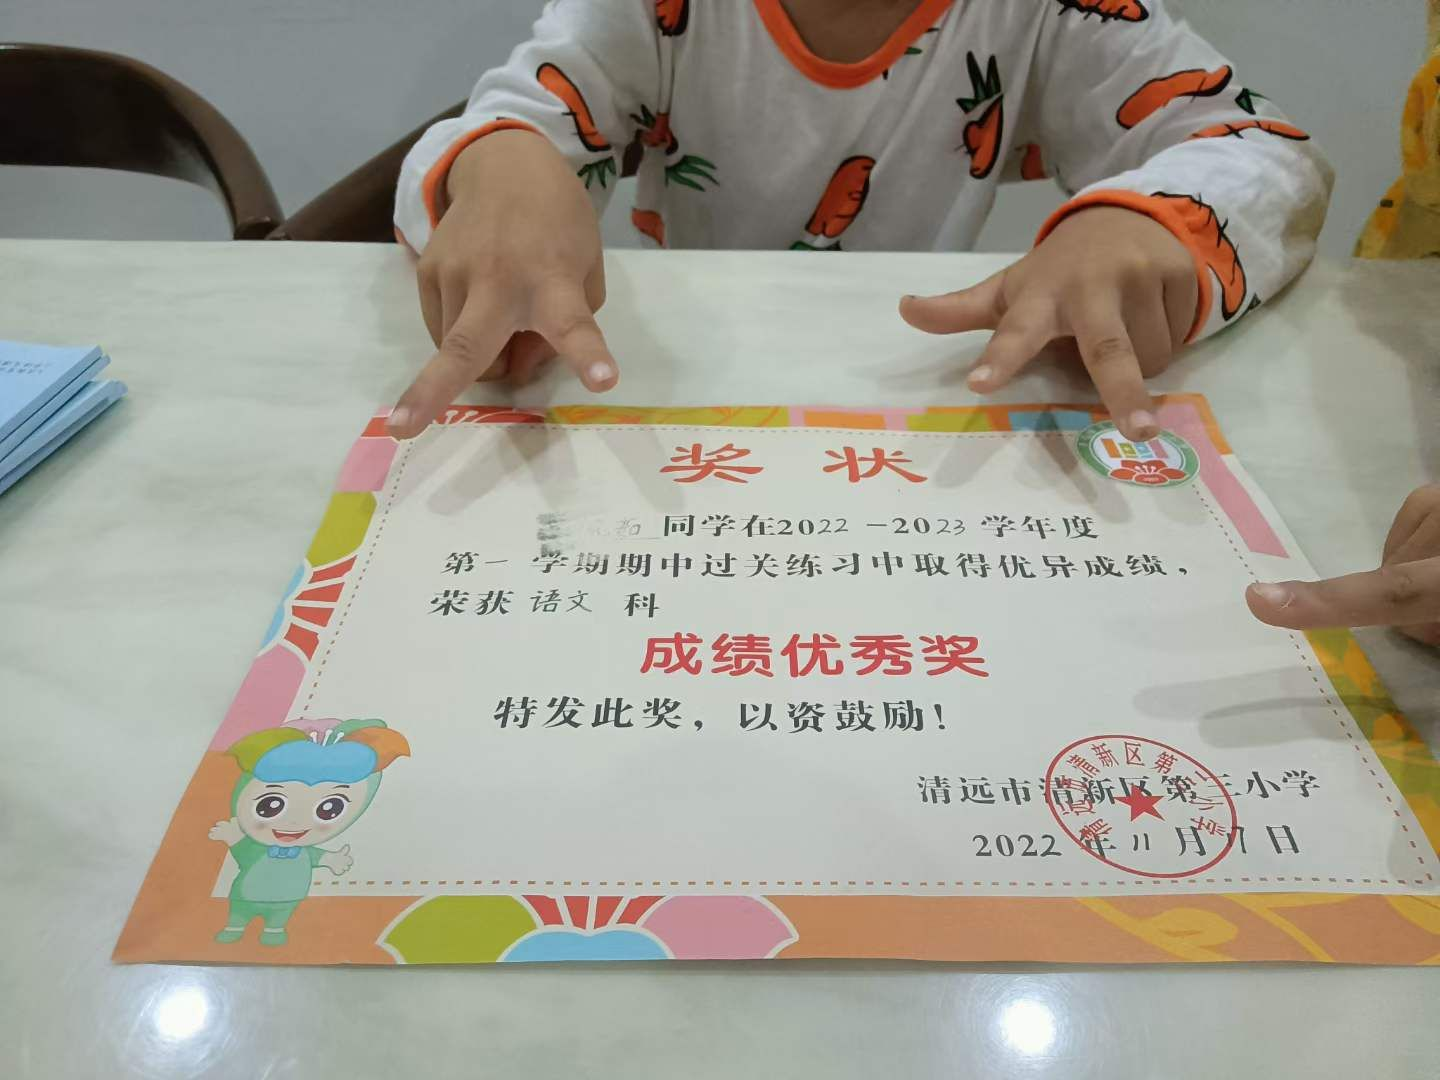 奖 状
同学在2022－2023 学年度
第一 学期期中过关练习中取得优异成绩，
荣获 语文 科
成绩优秀奖
特发此奖，以资鼓励！
清远市清新区第三小学
2022 年 11 月 17 日
清远市清新区第三小学